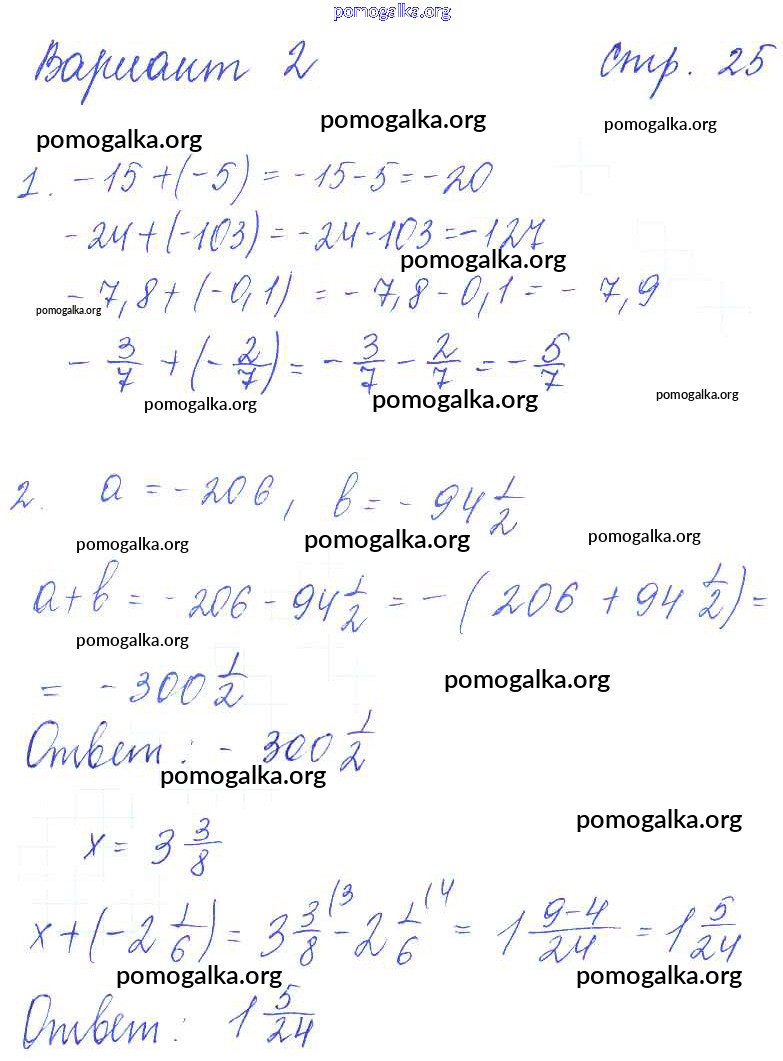 pomogalka.org
Вариант 2 Стр. 25
pomogalka.org pomogalka.org pomogalka.org
1. -15 + (-5) = -15-5 = -20
-24 + (-103) = -24-103 = -127
pomogalka.org
-7,8 + (-0,1) = -7,8 - 0,1 = -7,9
pomogalka.org
- 3/7 + (- 2/7) = - 3/7 - 2/7 = - 5/7
pomogalka.org pomogalka.org pomogalka.org
2. a = -206, b = -94 1/2
pomogalka.org pomogalka.org pomogalka.org
a+b = -206 - 94 1/2 = -(206 + 94 1/2) =
pomogalka.org
= -300 1/2
pomogalka.org
Ответ: -300 1/2
pomogalka.org
pomogalka.org
x = 3 3/8
x + (-2 1/6) = 3 3/8 (3 - 2 1/6 (4 = 1 9-4/24 = 1 5/24
pomogalka.org pomogalka.org
Ответ: 1 5/24